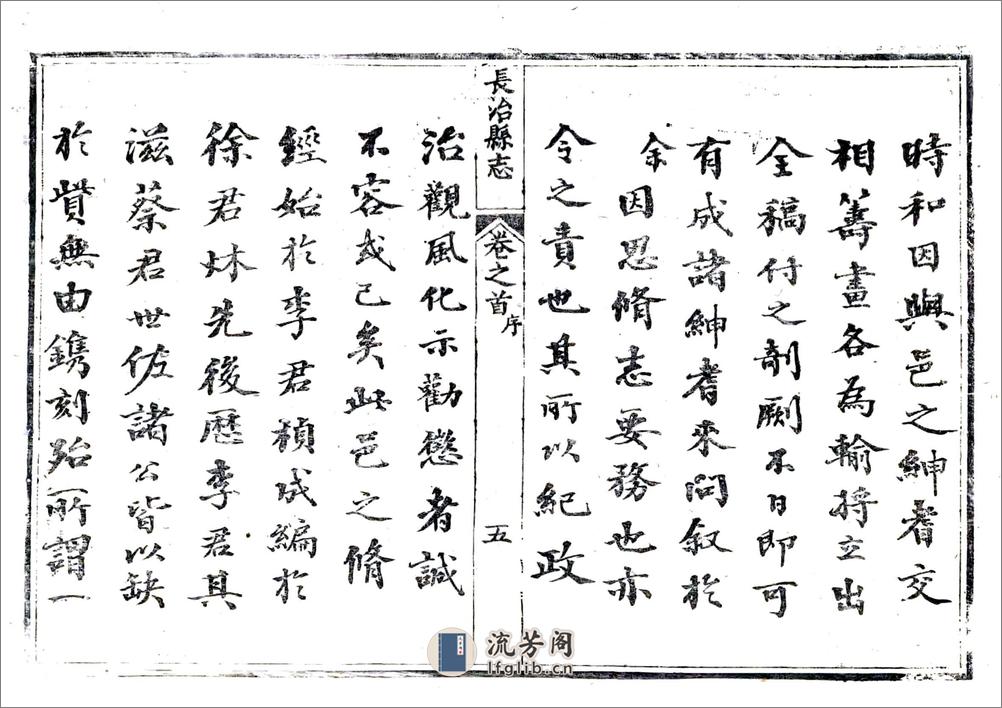 時和因與邑之紳耆交
相籌畫各為輸捋立出
全稿付之剞劂不日即可
有成諸紳耆來問叙於
余因思脩志要務也亦
令之責也其所以紀政
長治縣志
卷之首
序
五
治觀風化示勸懲者誠
不容或已矣此邑之脩
經始於李君楨成編於
徐君炑先後歷李君其
滋蔡君世佐諸公皆以缺
於貲無由鐫刻殆所謂一
流芳阁
lfglib.cn